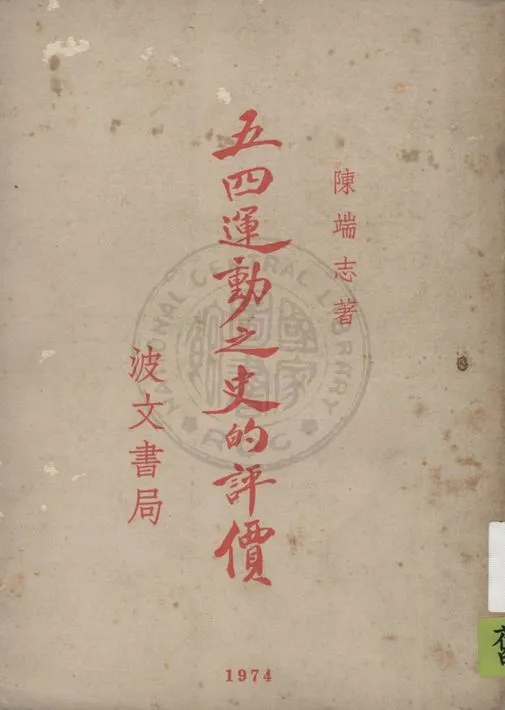 陳端志著
五四運動之史的評價
波文書局
1974
NATIONAL CENTRAL LIBRARY
R.O.C.